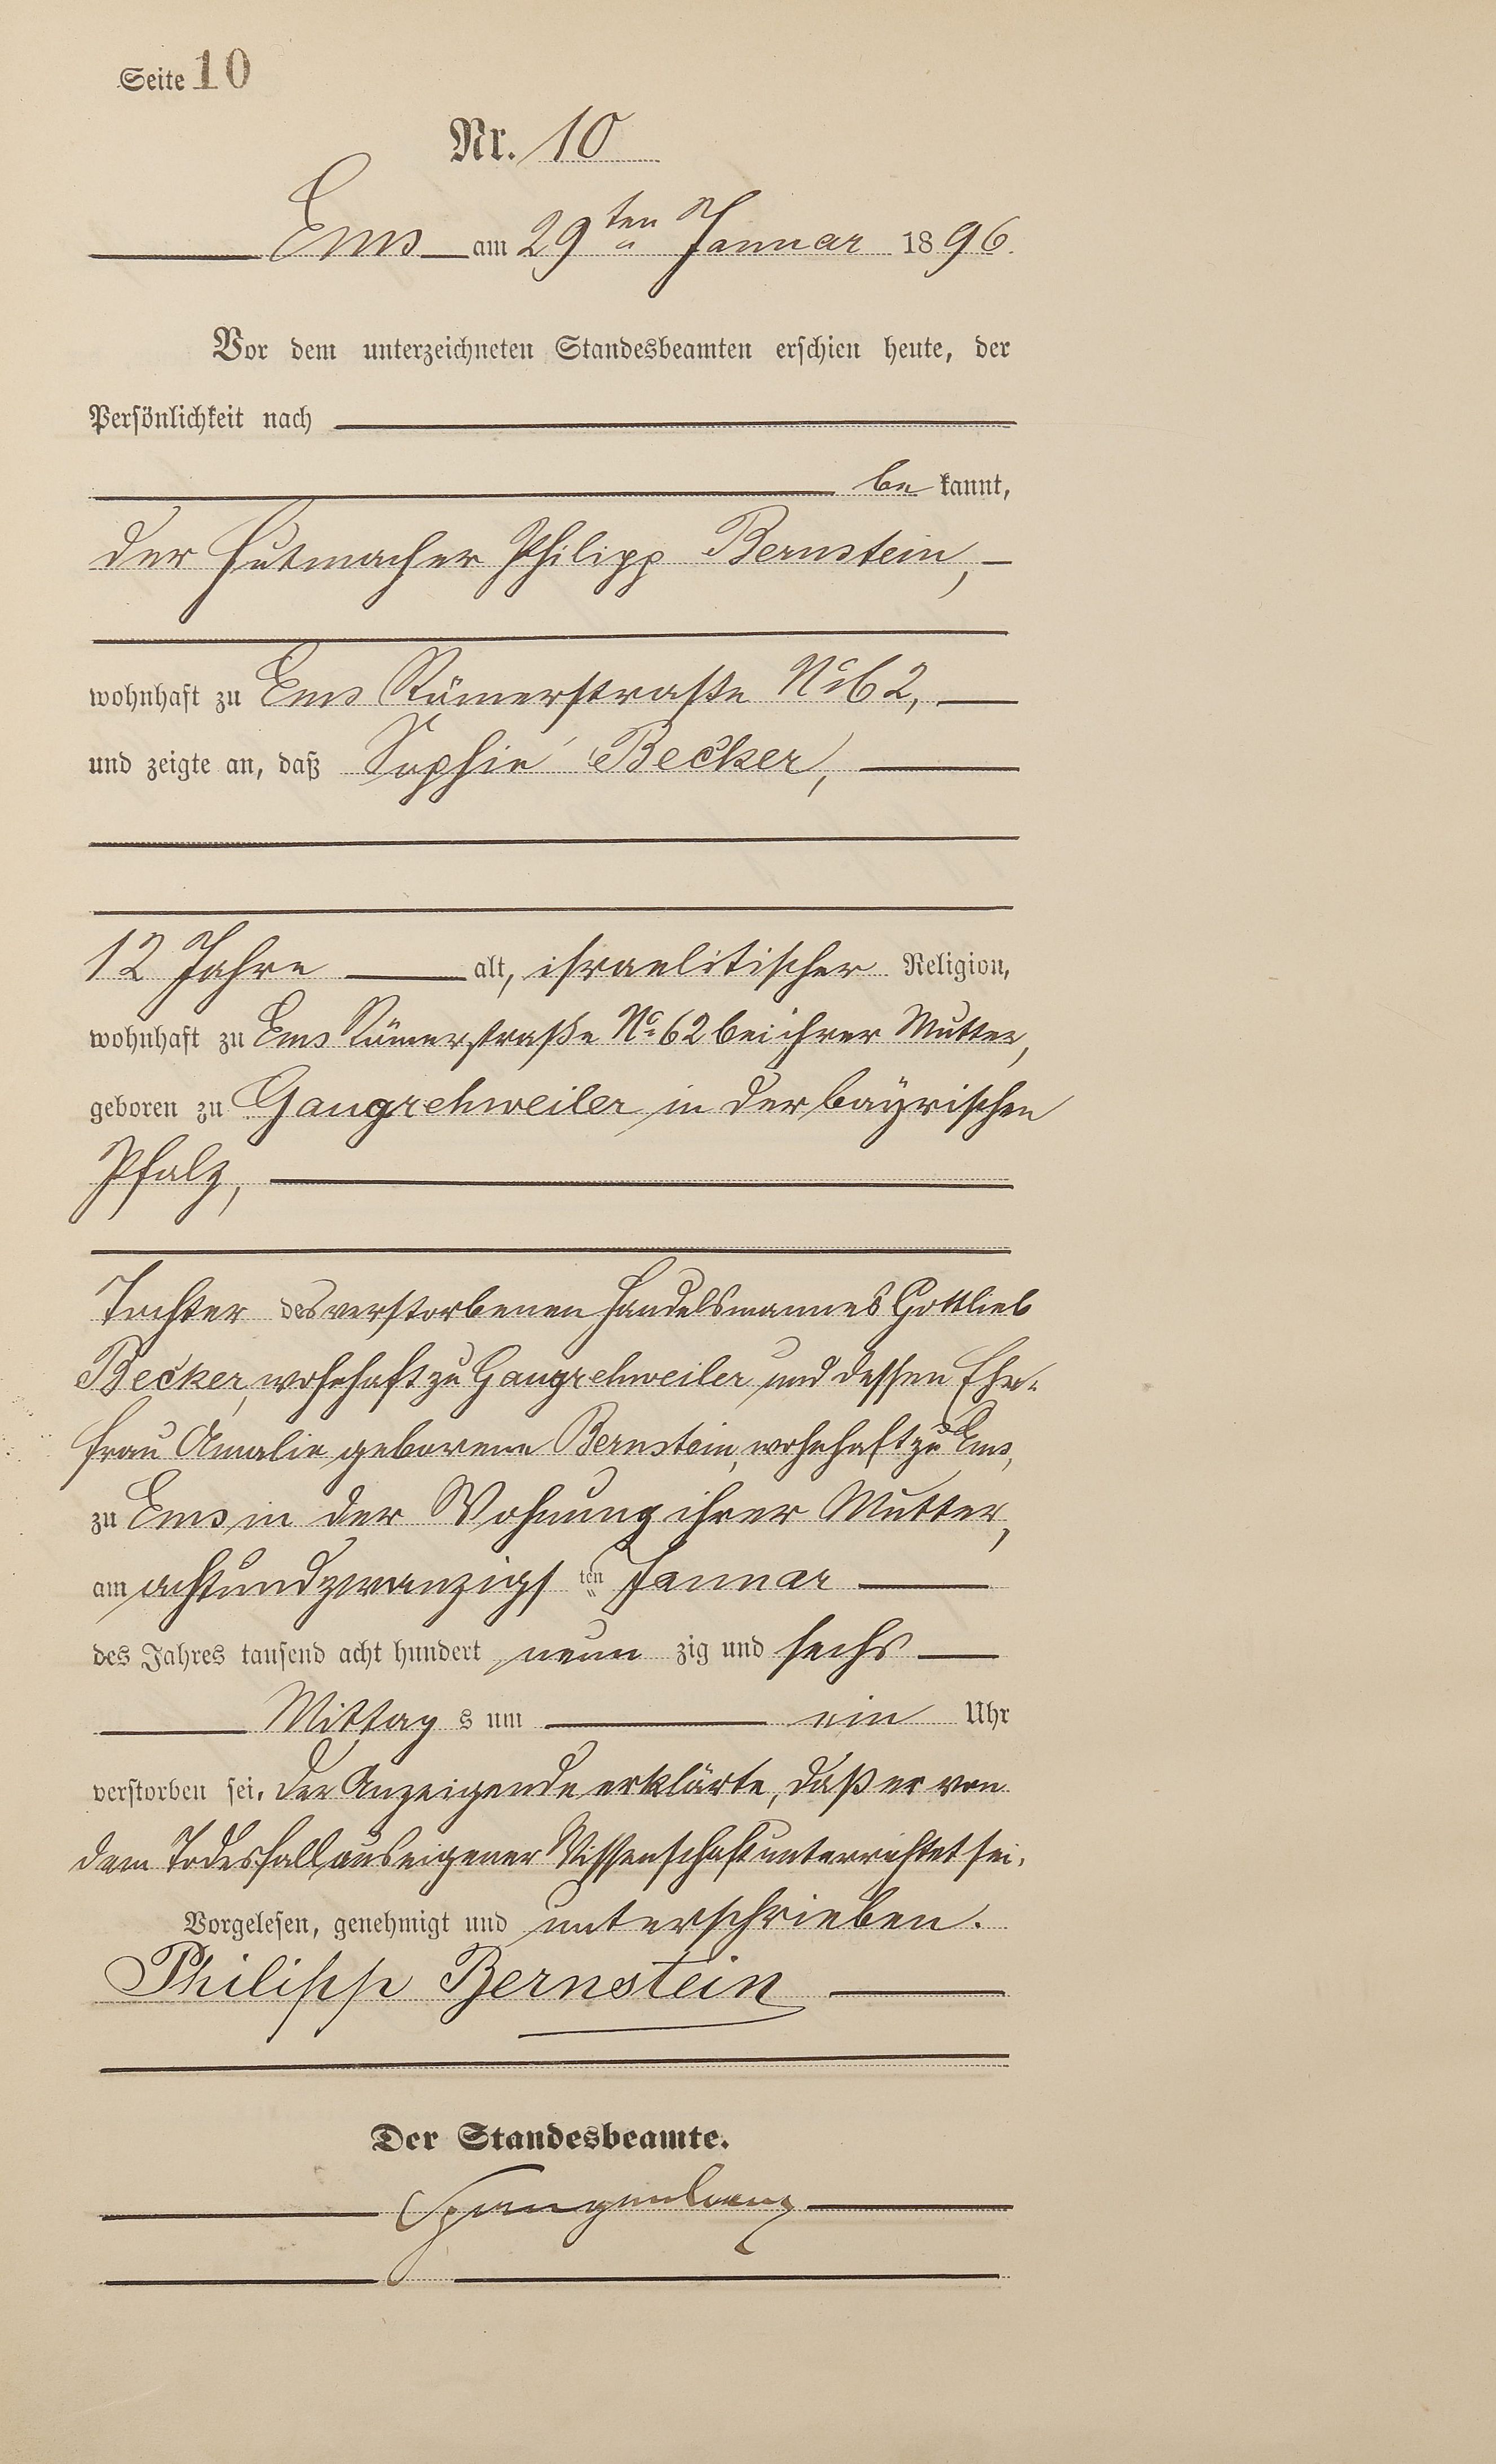 Seite 10
Nr. 10
Ems am 29ten Januar 1896.
Vor dem unterzeichneten Standesbeamten erschien heute, der
Persönlichkeit nach
be kannt,
der Hutmacher Philipp Bernstein,
wohnhaft zu Ems Römerstraße No 62,
und zeigte an, daß Sophie Becker,
12 Jahre alt, israelitischer Religion,
wohnhaft zu Ems Römerstraße No 62 bei ihrer Mutter,
geboren zu Gaugrehweiler in der bayrischen
Pfalz,
Tochter des verstorbenen Handelsmannes Gottlieb
Becker, wohnhaft zu Gaugrehweiler und dessen Ehe-
frau Amalie geborene Bernstein, wohnhaft zu Ems,
zu Ems in der Wohnung ihrer Mutter,
am achtundzwanzigsten Januar
des Jahres tausend acht hundert neun zig und sechs
Mittag s um ein Uhr
verstorben sei. Der Anzeigende erklärte, daß er von
dem Todesfall aus eigener Wissenschaft unterrichtet sei.
Vorgelesen, genehmigt und unterschrieben.
Philipp Bernstein
Der Standesbeamte.
Spangenberg